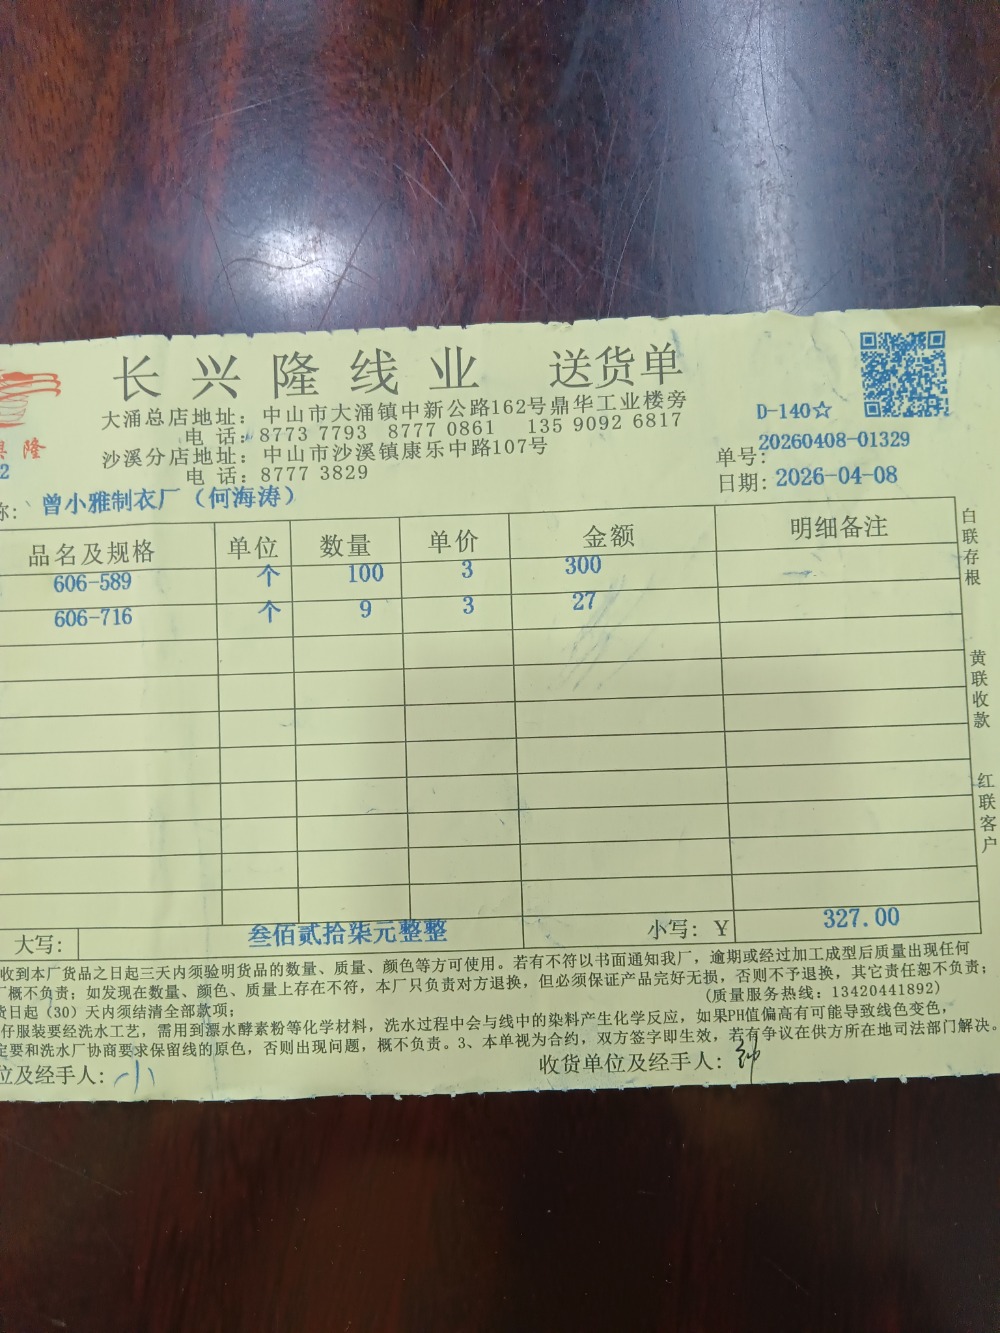 长兴隆线业 送货单
大涌总店地址：中山市大涌镇中新公路162号鼎华工业楼旁
电 话：8773 7793 8777 0861 135 9092 6817
沙溪分店地址：中山市沙溪镇康乐中路107号
电 话：8777 3829
隆
2
D-140☆
单号：20260408-01329
日期：2026-04-08
称：曾小雅制衣厂（何海涛）
品名及规格 单位 数量 单价 金额 明细备注
606-589 个 100 3 300
606-716 个 9 3 27
大写：叁佰贰拾柒元整整 小写：Y 327.00
白联存根
黄联收款
红联客户
收到本厂货品之日起三天内须验明货品的数量、质量、颜色等方可使用。若有不符以书面通知我厂，逾期或经过加工成型后质量出现任何
厂概不负责；如发现在数量、颜色、质量上存在不符，本厂只负责对方退换，但必须保证产品完好无损，否则不予退换，其它责任恕不负责；
货日起（30）天内须结清全部款项； （质量服务热线：13420441892）
仔服装要经洗水工艺，需用到漂水酵素粉等化学材料，洗水过程中会与线中的染料产生化学反应，如果PH值偏高有可能导致线色变色，
定要和洗水厂协商要求保留线的原色，否则出现问题，概不负责。3、本单视为合约，双方签字即生效，若有争议在供方所在地司法部门解决。
位及经手人：小 收货单位及经手人：